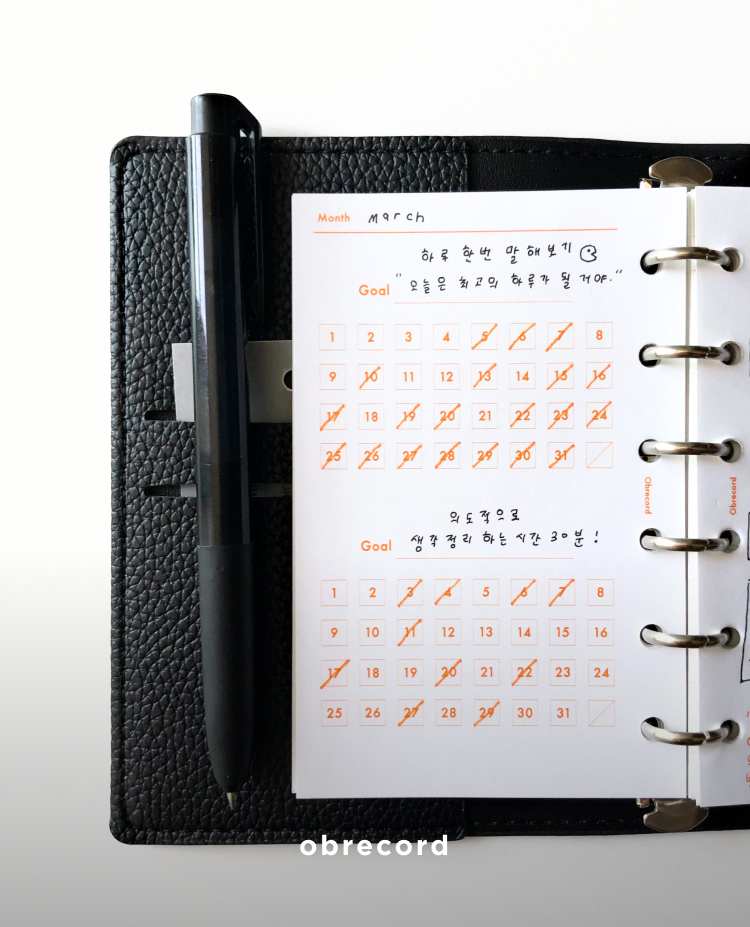 Month March
하루 한번 말해보기
Goal "오늘은 최고의 하루가 될 거야."
1 2 3 4 5 6 7 8
9 10 11 12 13 14 15 16
17 18 19 20 21 22 23 24
25 26 27 28 29 30 31
의도적으로
Goal 생각정리 하는 시간 30분!
1 2 3 4 5 6 7 8
9 10 11 12 13 14 15 16
17 18 19 20 21 22 23 24
25 26 27 28 29 30 31
Obrecord
Obrecord
obrecord